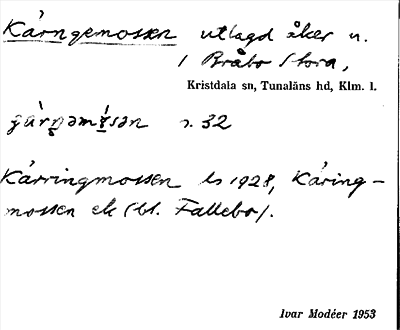 Kärngemossen utlagd åker u.
/ Bråbo Stora,
Kristdala sn, Tunaläns hd, Klm. l.
s. 32
Kärringmossen ls 1928, Käring-
mossen ek (bl. Fallebo).
Ivar Modéer 1953